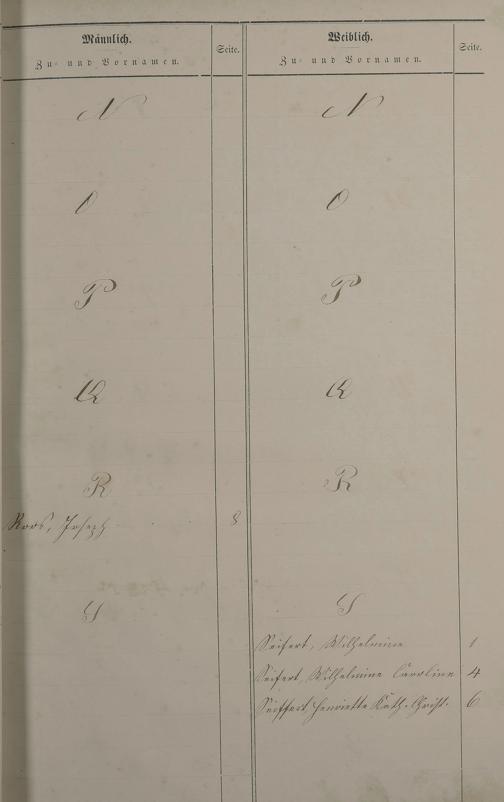 Männlich.
Zu- und Vornamen.
Seite.
N
O
P
Q
R
Roos, Joseph 8
S
Weiblich.
Zu- und Vornamen.
Seite.
N
O
P
Q
R
S
Seifert, Wilhelmine 1
Seifert, Wilhelmine Caroline 4
Seiffert, Henriette Kath. Christ. 6